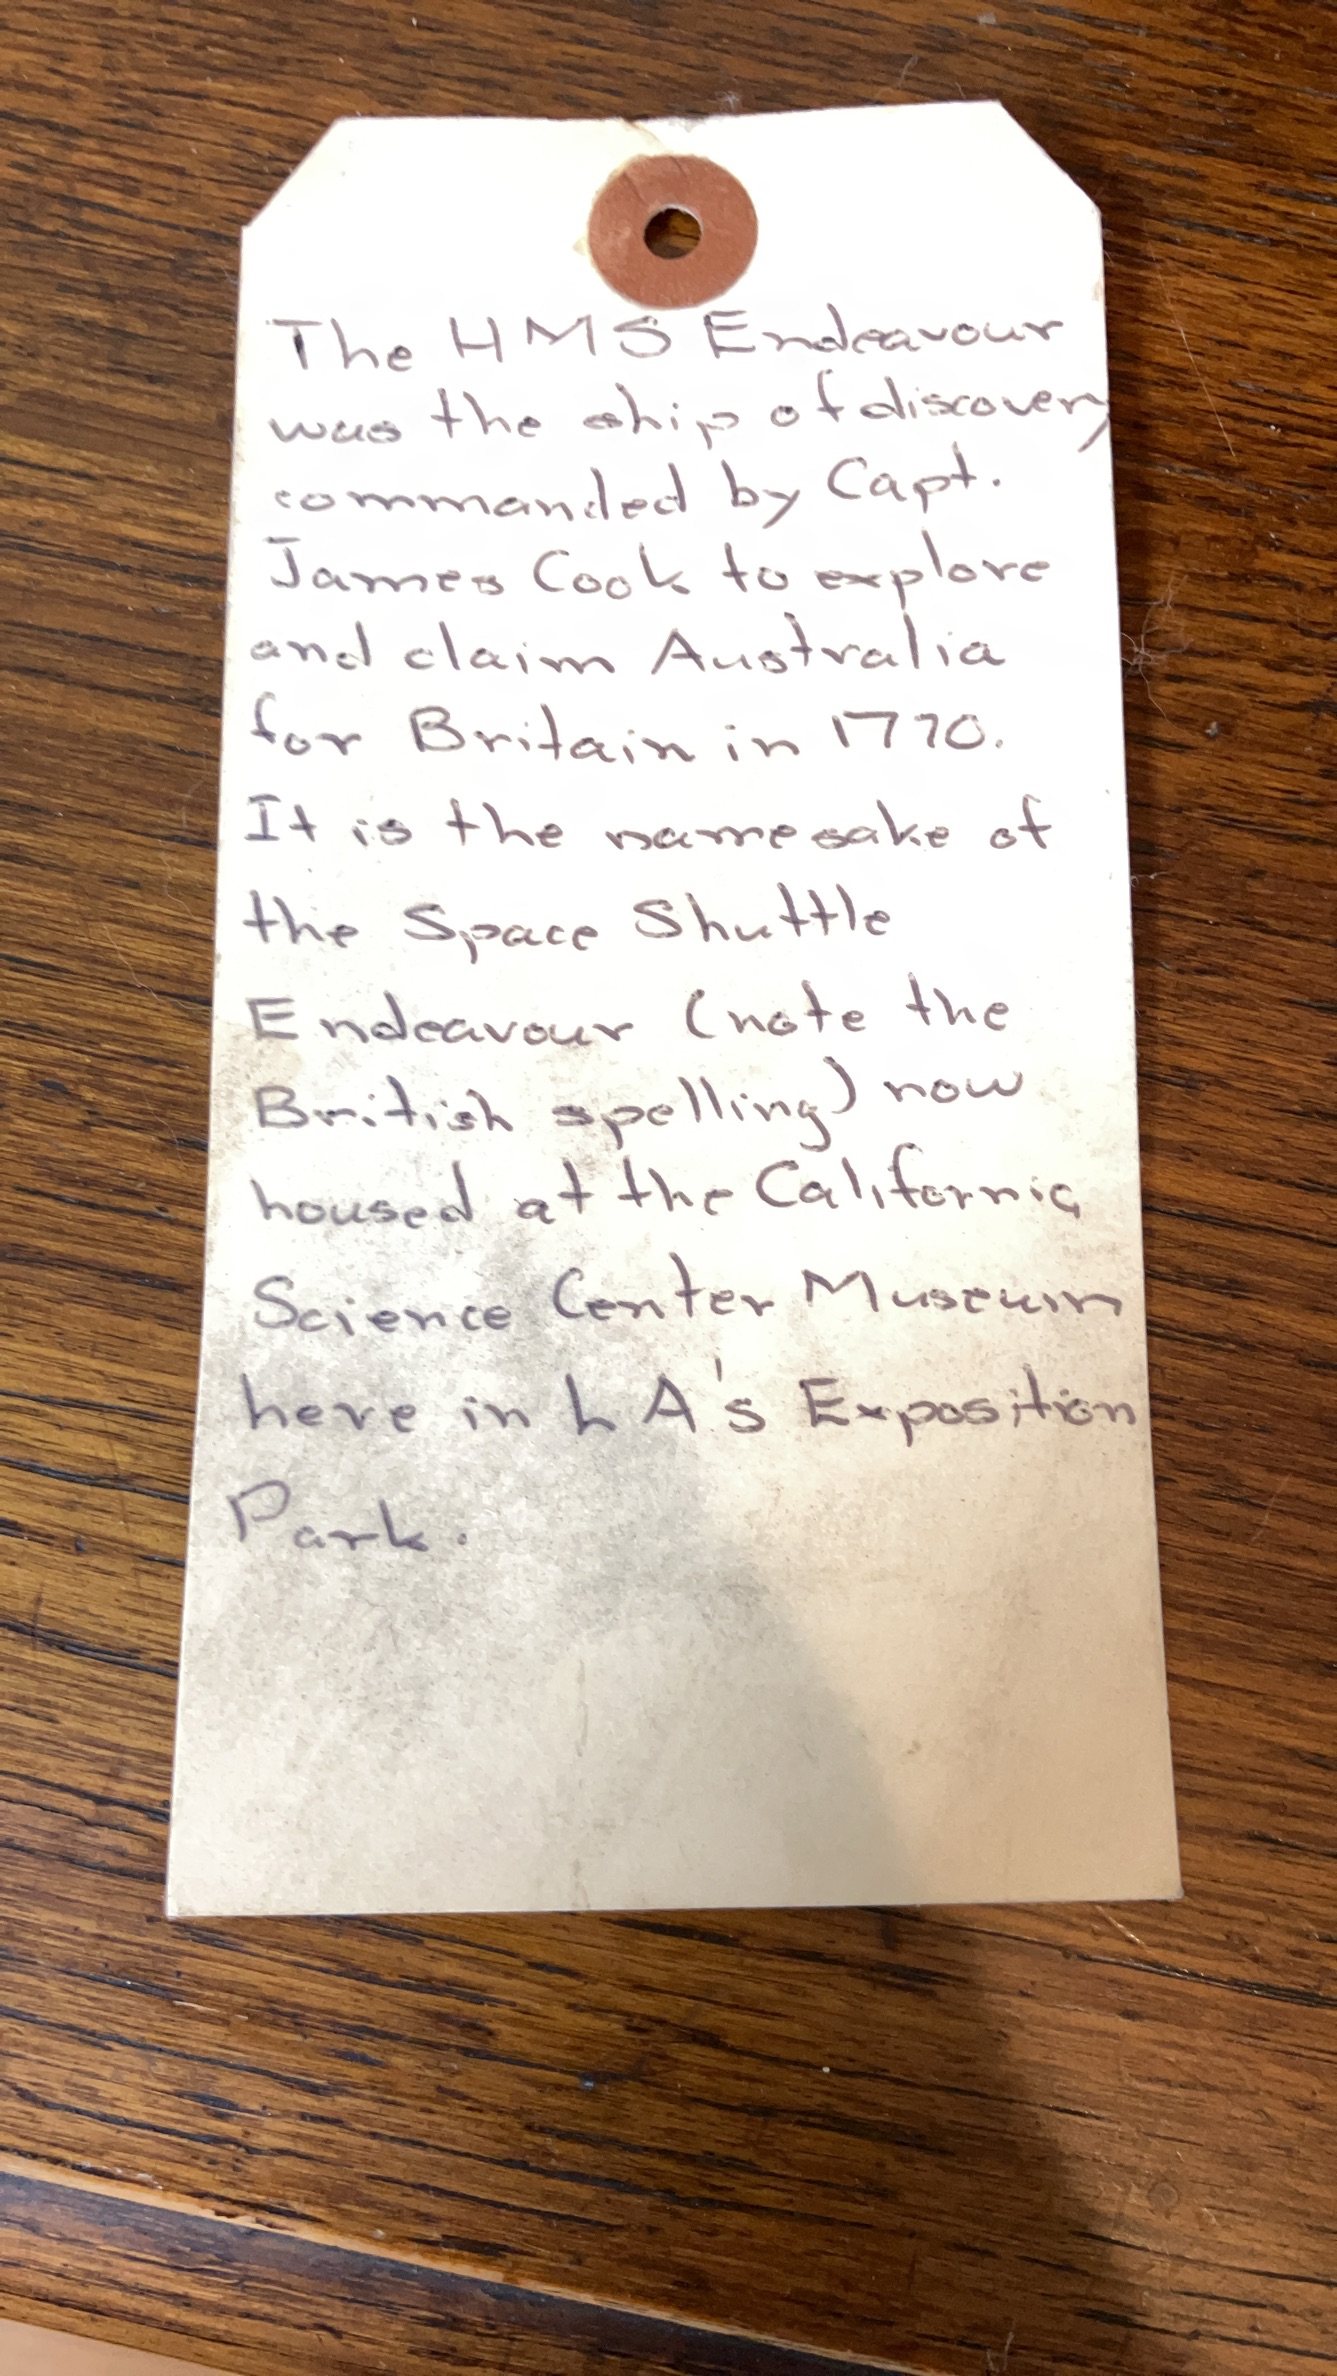 The HMS Endeavour
was the ship of discovery
commanded by Capt.
James Cook to explore
and claim Australia
for Britain in 1770.
It is the namesake of
the Space Shuttle
Endeavour (note the
British spelling) now
housed at the California
Science Center Museum
here in LA's Exposition
Park.